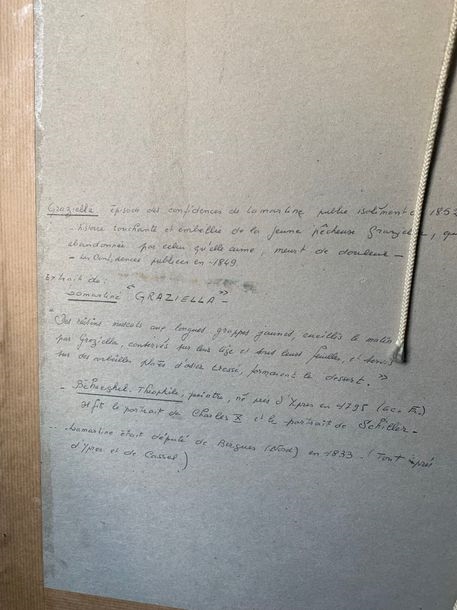 Graziella épisode des confidences de Lamartine publié isolément en 1852
- histoire touchante et embellie de la jeune pêcheuse Graziella, qui
abandonnée par celui qu'elle aime, meurt de douleur -
- Les Confidences publiées en 1849.
Extrait de :
Lamartine "GRAZIELLA" -
"Des raisins muscats aux longues grappes jaunes, cueillis le matin
par Graziella, conservés sur leur tige et sous leurs feuilles, et servis
sur des corbeilles plates d'osier tressé, formaient le dessert. "
- Béhaeghel Théophile, peintre, né près d'Ypres en 1795 (
il fit le portrait de Charles X et le portrait de Schiller -
Lamartine était député de Bergues (Nord) en 1833 - (Tout près
d'Ypres et de Cassel)